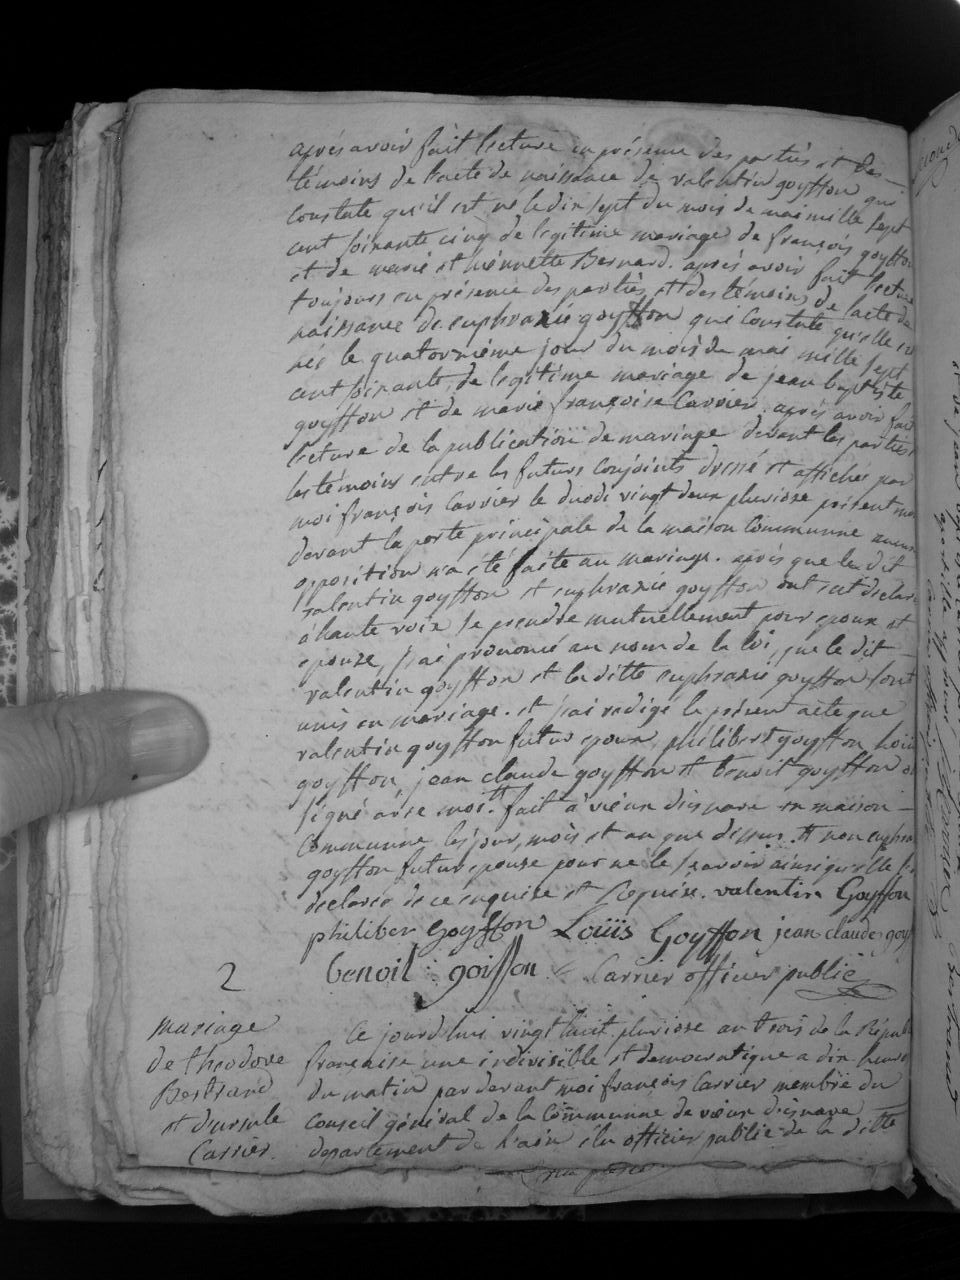 après avoir fait lecture en présence des parties et des
témoins de lacte de naissance de valentin goyffon que
Constate qu'il est né le dix sept du mois de mai mille sept
cent soixante cinq de légitime mariage de françois goyffon
et de marie et hiénnette Bernard. après avoir fait lecture
toujours en présence des parties et des témoins de lacte de
naissance de euphrasie goyffon que Constate qu'elle est
née le quatorzième jour du mois de mai mille sept
cent soixante, de légitime mariage de jean baptiste
goyffon et de marie françoise Carrier. après avoir fait
lecture de la publication de mariage devant les parties
les témoins entre les futurs Conjoints dressé et affichés par
moi françois Carrier le duodi vingt deux pluviose présent mois
devant la porte principale de la maison Communne aucune
opposition n'a été faite au mariage. après que le dit
valentin goyffon et euphrasie goyffon ont eut declaré
à haute voix se prendre mutuellement pour epoux et
epouze, j'ai prononcé au nom de la loi, que le dit
valentin goyffon et la ditte euphrasie goyffon sont
unis en mariage. et j'ai redigé le présent acte que
valentin goyffon futur epoux, philibert goyffon, loüis
goyffon, jean claude goyffon et benoit goyffon ont
signé avec moi. fait à vieux disnave en maison
Communne les jour, mois et an que dessus. et non euphrasie
goyffon future epouse pour ne le sçavoir ainsi quelle l'a
declarée de ce enquise et requise. valentin Goyffon
philiber goyffon Loüis Goyffon jean claude goyffon
benoit goiffon Carrier officier public
2
mariage
de theodore
Bertrand
et d'ursule
Carrier.
Ce jourd'hui vingt huit pluviose an trois de la Républ
francaise une indivisible et democratique a dix heures
du matin par devant moi françois Carrier membre du
Conseil général de la Communne de vieux disnave
departement de l'ain élu officier public de la ditte